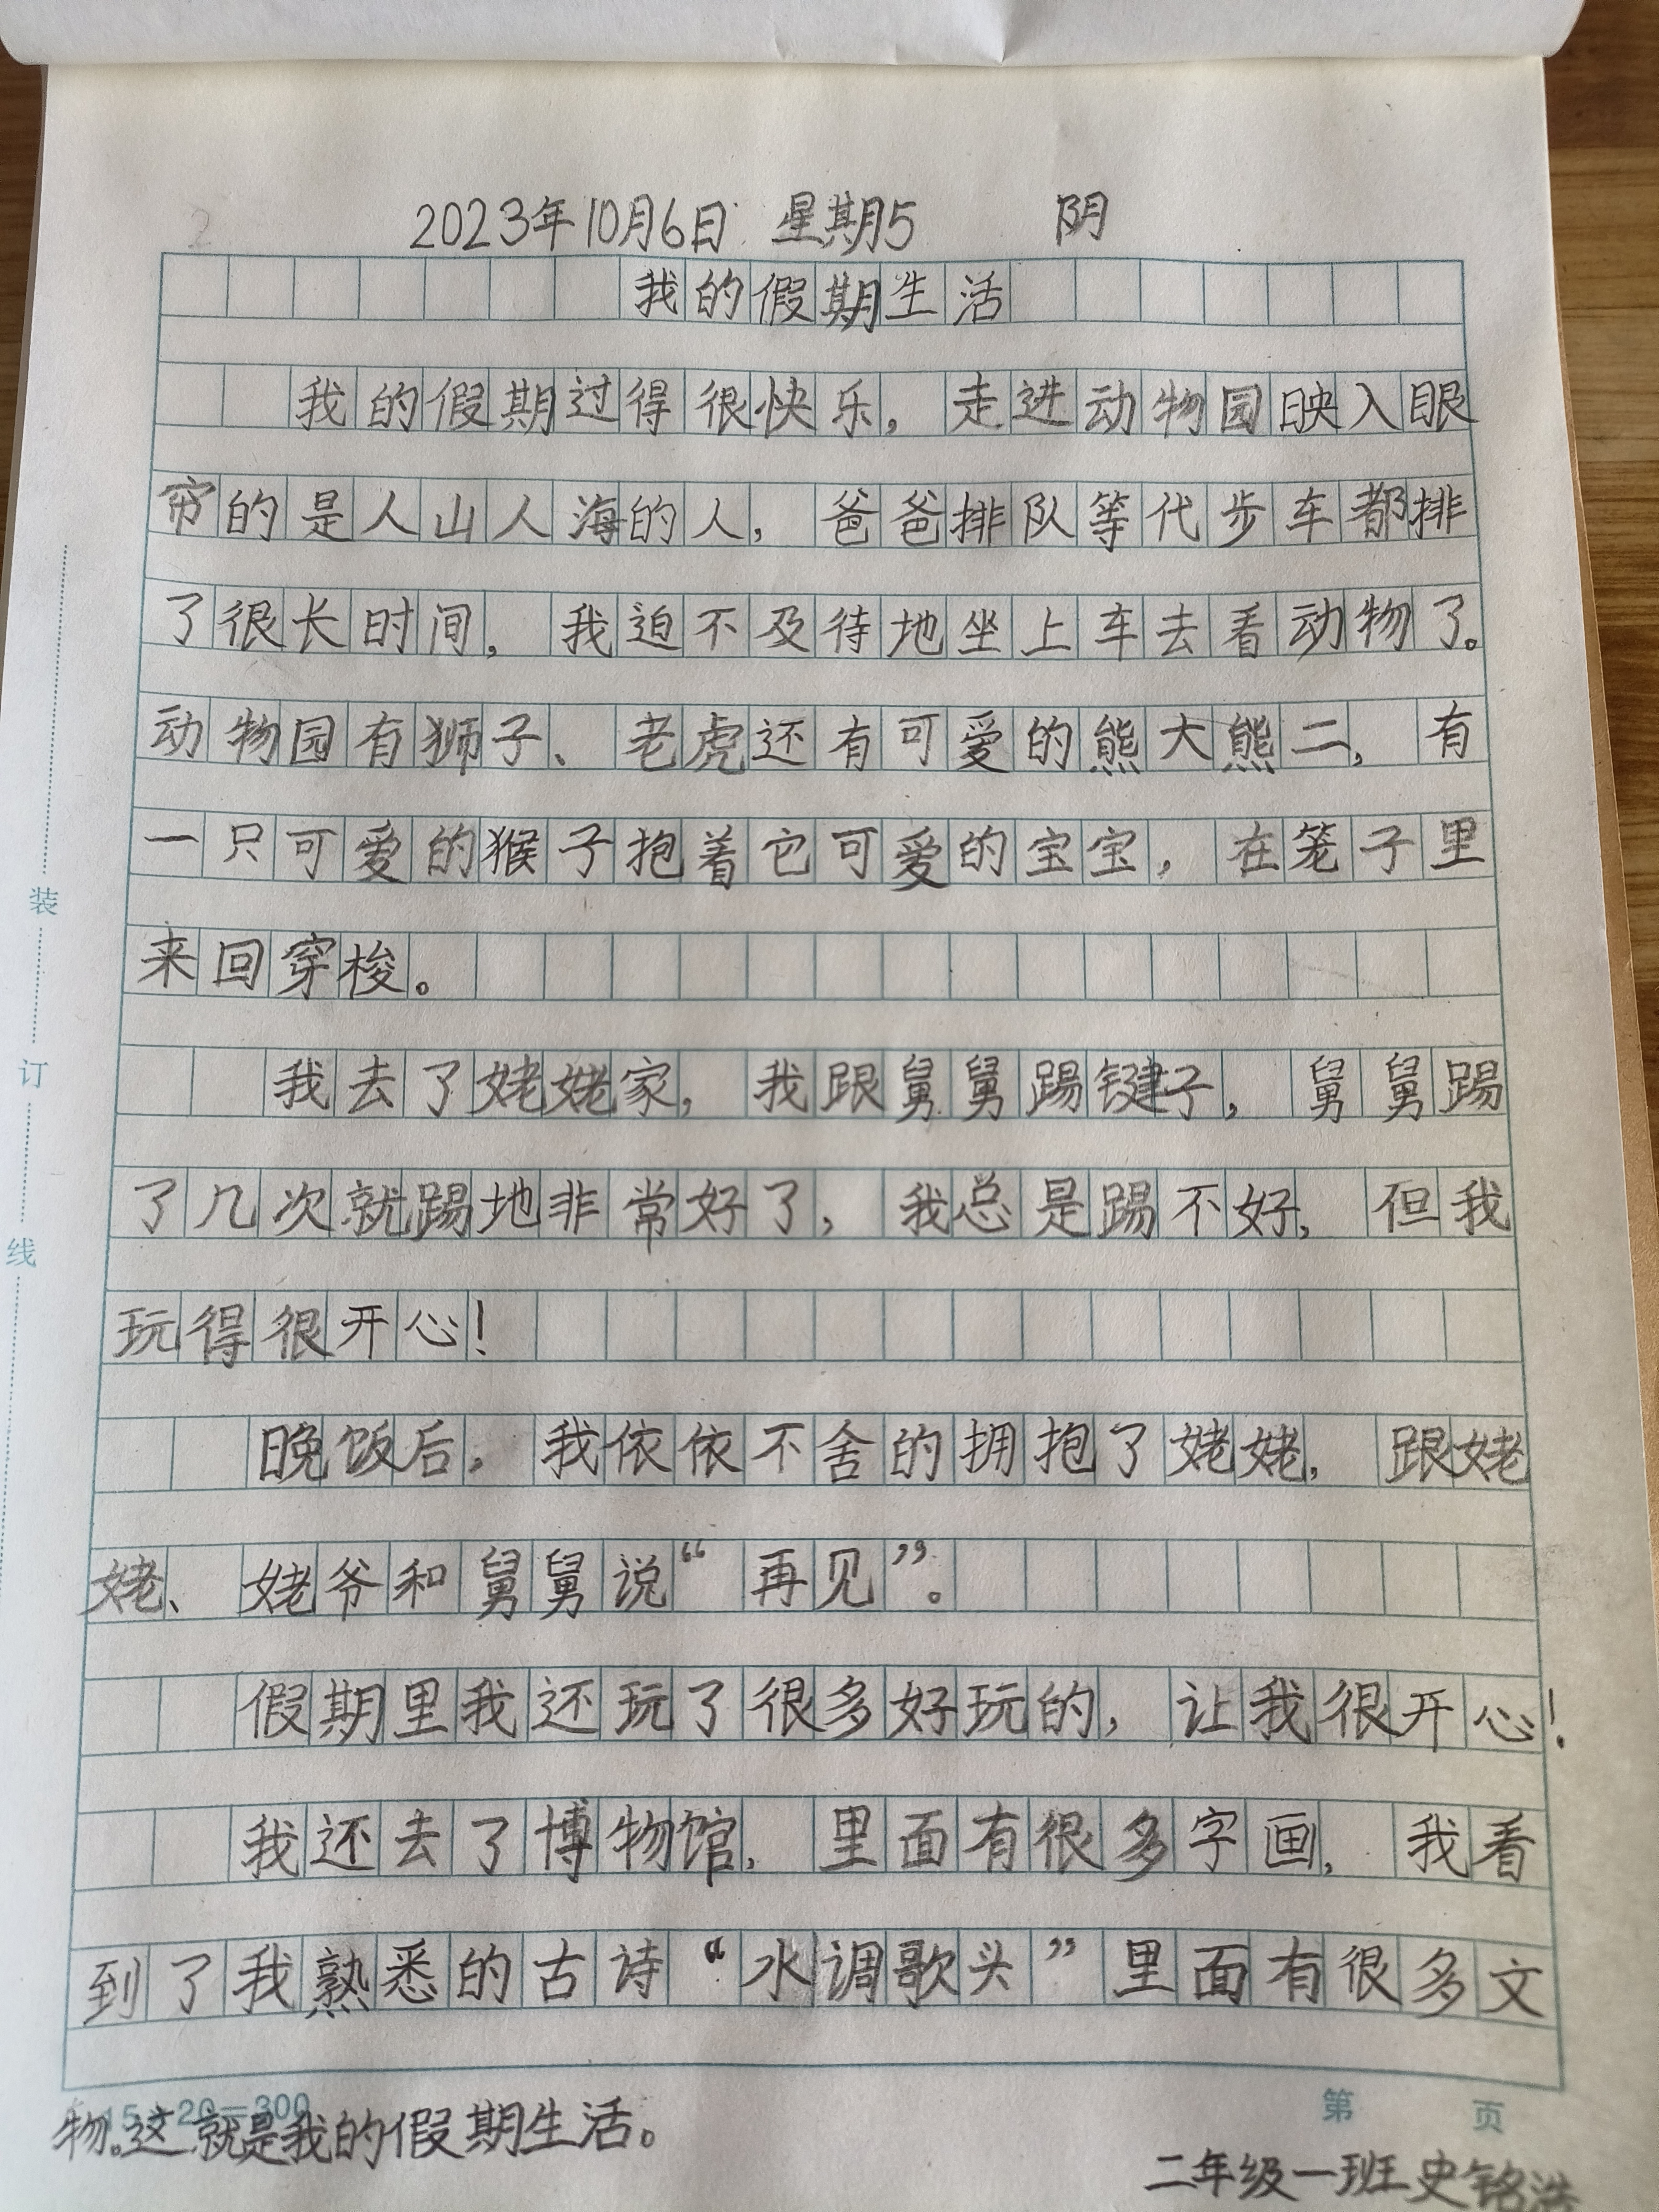 2023年10月6日 星期5 阴
我的假期生活
我的假期过得很快乐，走进动物园映入眼
帘的是人山人海的人，爸爸排队等代步车都排
了很长时间，我迫不及待地坐上车去看动物了。
动物园有狮子、老虎还有可爱的熊大熊二，有
一只可爱的猴子抱着它可爱的宝宝，在笼子里
来回穿梭。
我去了姥姥家，我跟舅舅踢键子，舅舅踢
了几次就踢地非常好了，我总是踢不好，但我
玩得很开心！
晚饭后，我依依不舍的拥抱了姥姥，跟姥
姥、姥爷和舅舅说“再见”。
假期里我还玩了很多好玩的，让我很开心！
我还去了博物馆，里面有很多字画，我看
到了我熟悉的古诗“水调歌头”里面有很多文
物。这就是我的假期生活。
15×20=300
第 页
二年级一班史铭浩
装
订
线